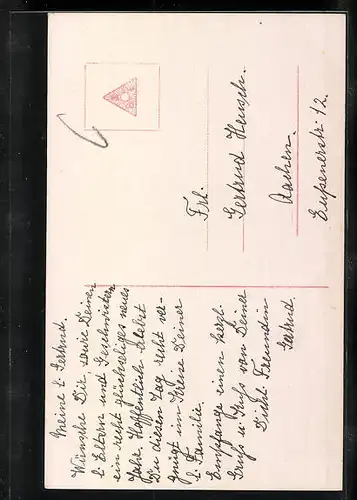 Meine l. Gertrud.
Wünsche Dir, sowie Deinen
l. Eltern und Geschwistern
ein recht glückseliges neues
Jahr. Hoffentlich erlebst
Du diesen Tag recht ver-
gnügt im Kreise Deiner
l. Familie.
Empfange einen herzl.
Gruß u. Kuss von Deiner
Dich l. Freundin
Gertrud.
Frl.
Gertrud Heusch.
Aachen.
Eupenerstr. 12.